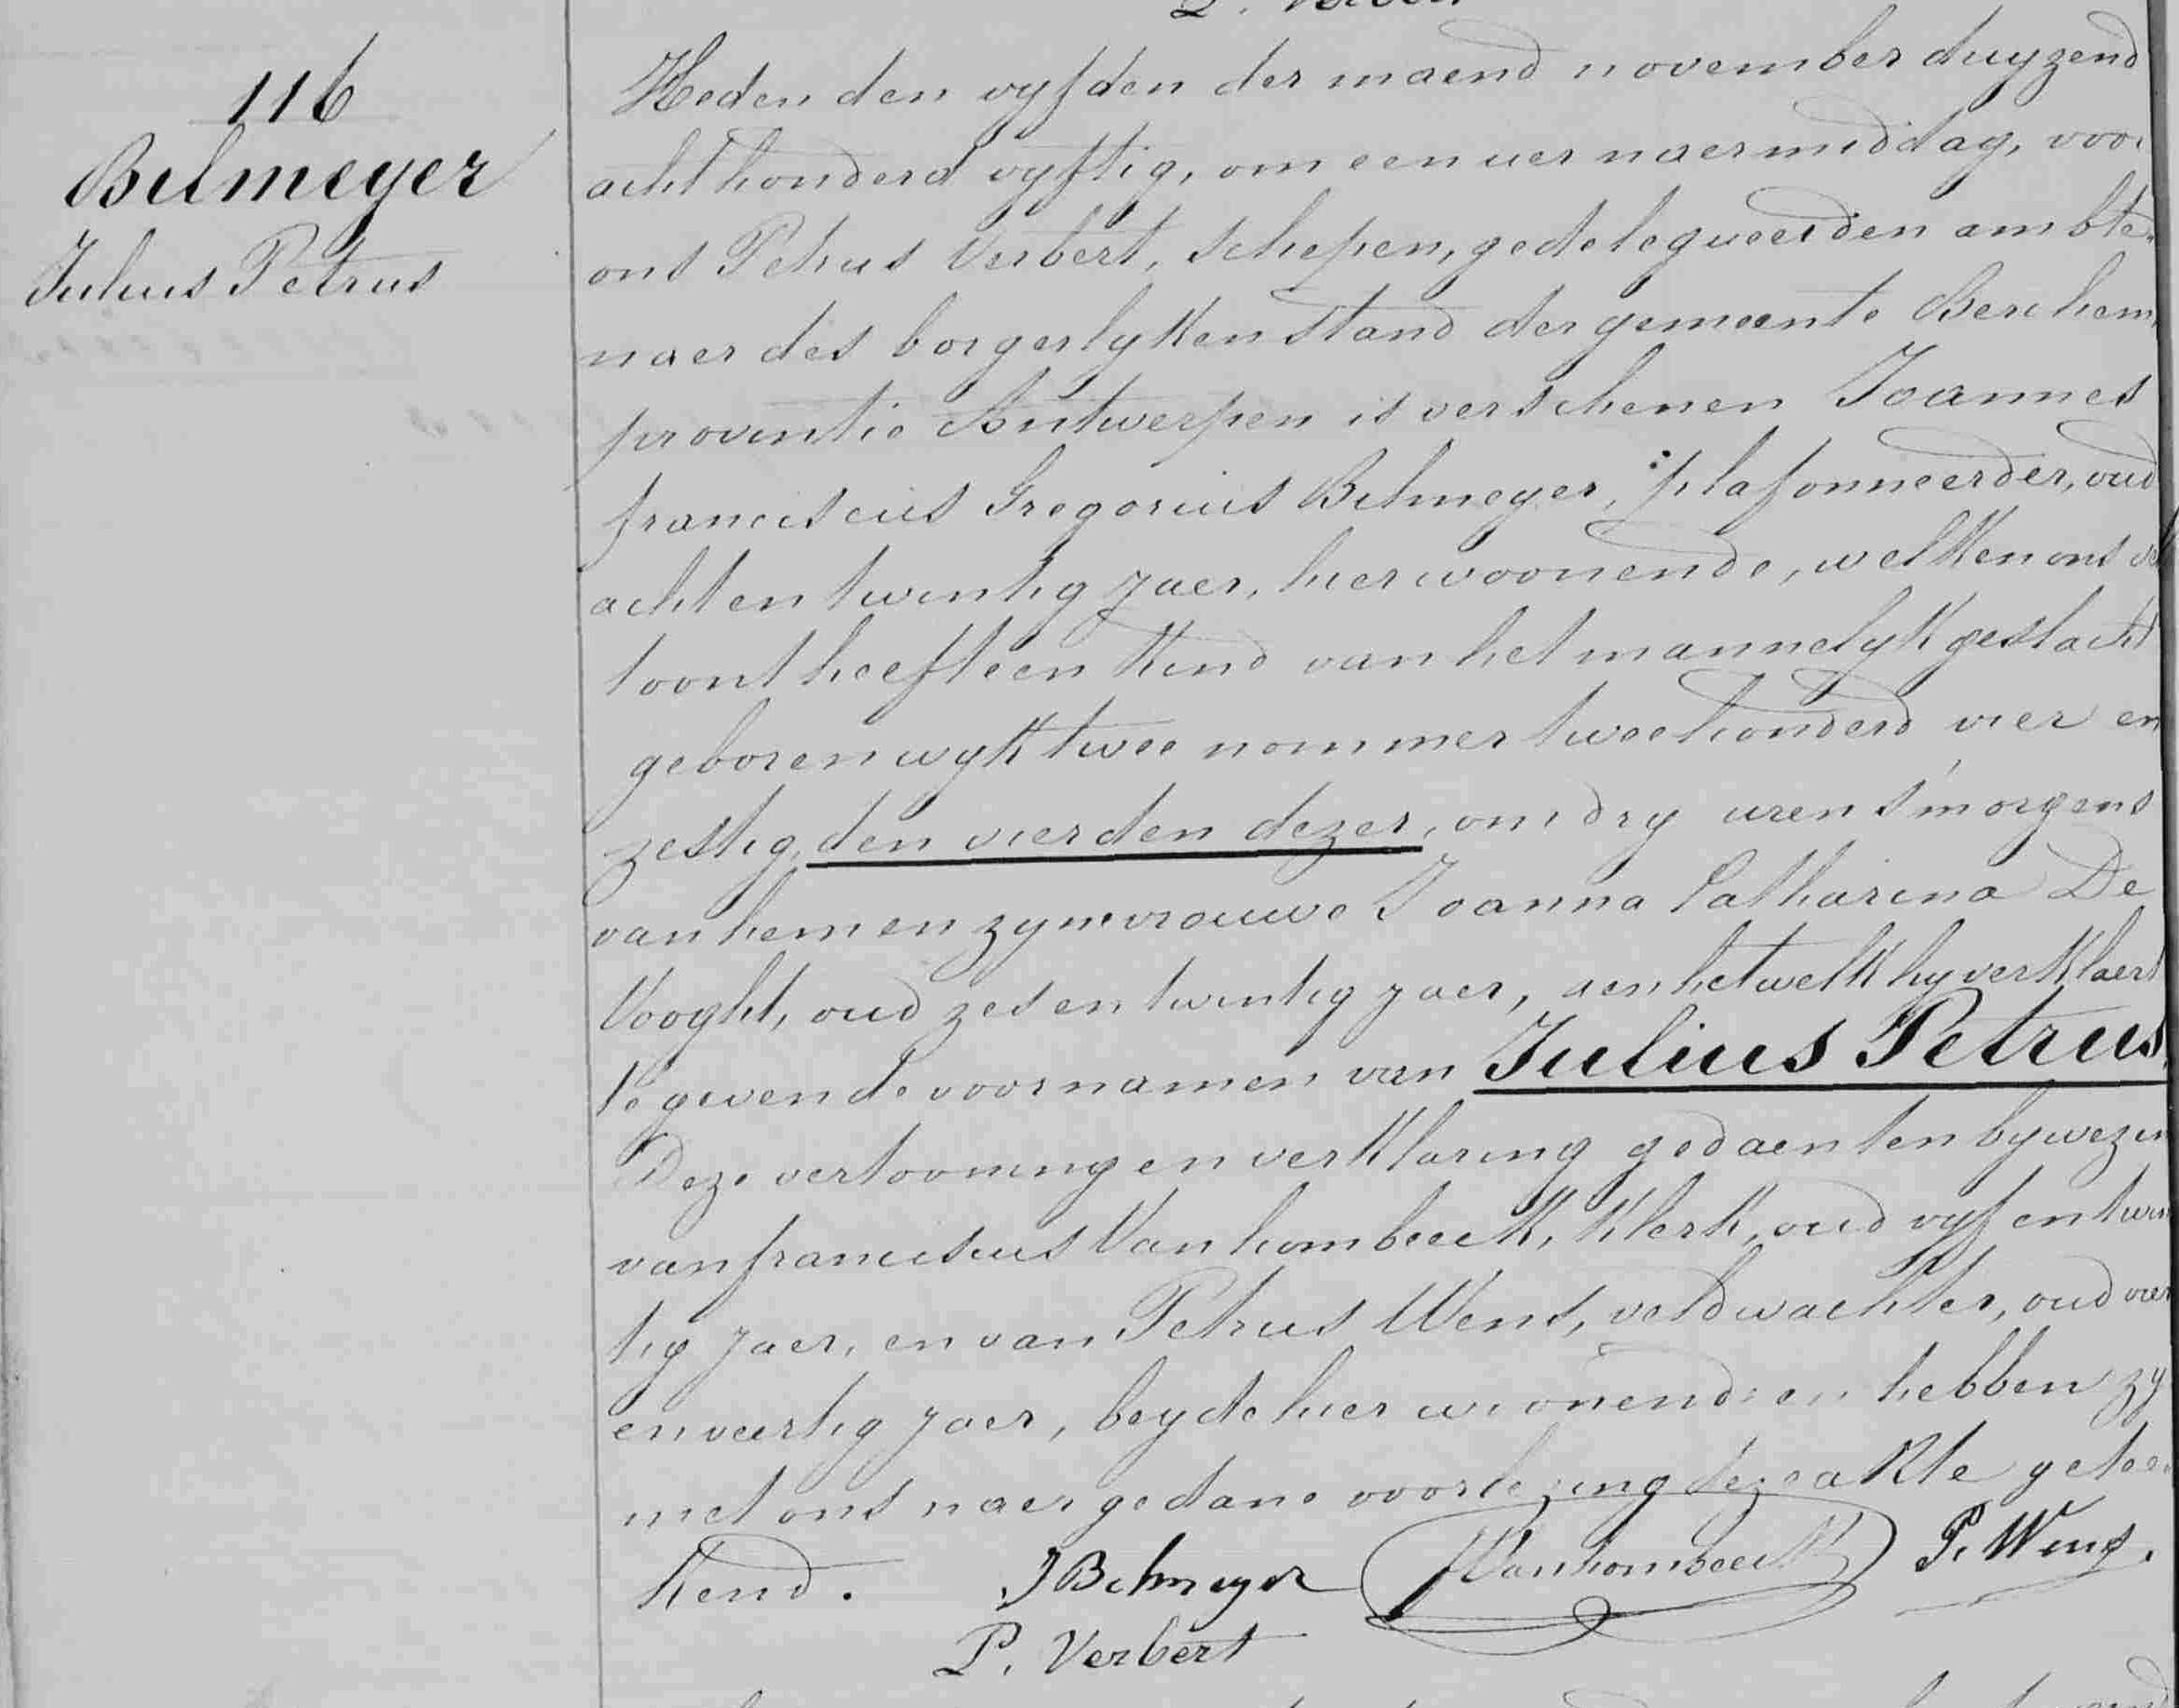 116
Belmeyer
Julius Petrus
Heden den vyfden der maend november duyzend
acht honderd vyftig, om een uer naermiddag, voor
ons Petrus Verbert, schepen, gedelegueerden ambte-
naer des borgerlyken stand der gemeente Berchem,
provintie Antwerpen is verschenen Joannes
franciscus Gregorius Belmeyer, plafonneerder, oud
acht en twintig jaer, hier woonende, welken ons ver
toont heeft een kind van het mannelyk geslacht
geboren wyk twee nommer twee honderd vier en
zestig, den vierden dezer, om dry uren s'morgens
van hem en zyne vrouwe Joanna Catharina De
Vooght, oud zes en twintig jaer, aen hetwelk hy verklaert
te geven de voornamen van Julius Petrus.
Deze vertooning en verklaring gedaen ten bywezen
van franciscus Vanhombeeck, klerk, oud vyf en twin
tig jaer, en van Petrus Wens, veldwachter, oud vier
en veertig jaer, beyde hier woonende en hebben zy
met ons naer gedane voorlezing deze akte getee
kend.
J Belmeyer
FVanhombeeck
P. Wens.
P. Verbert